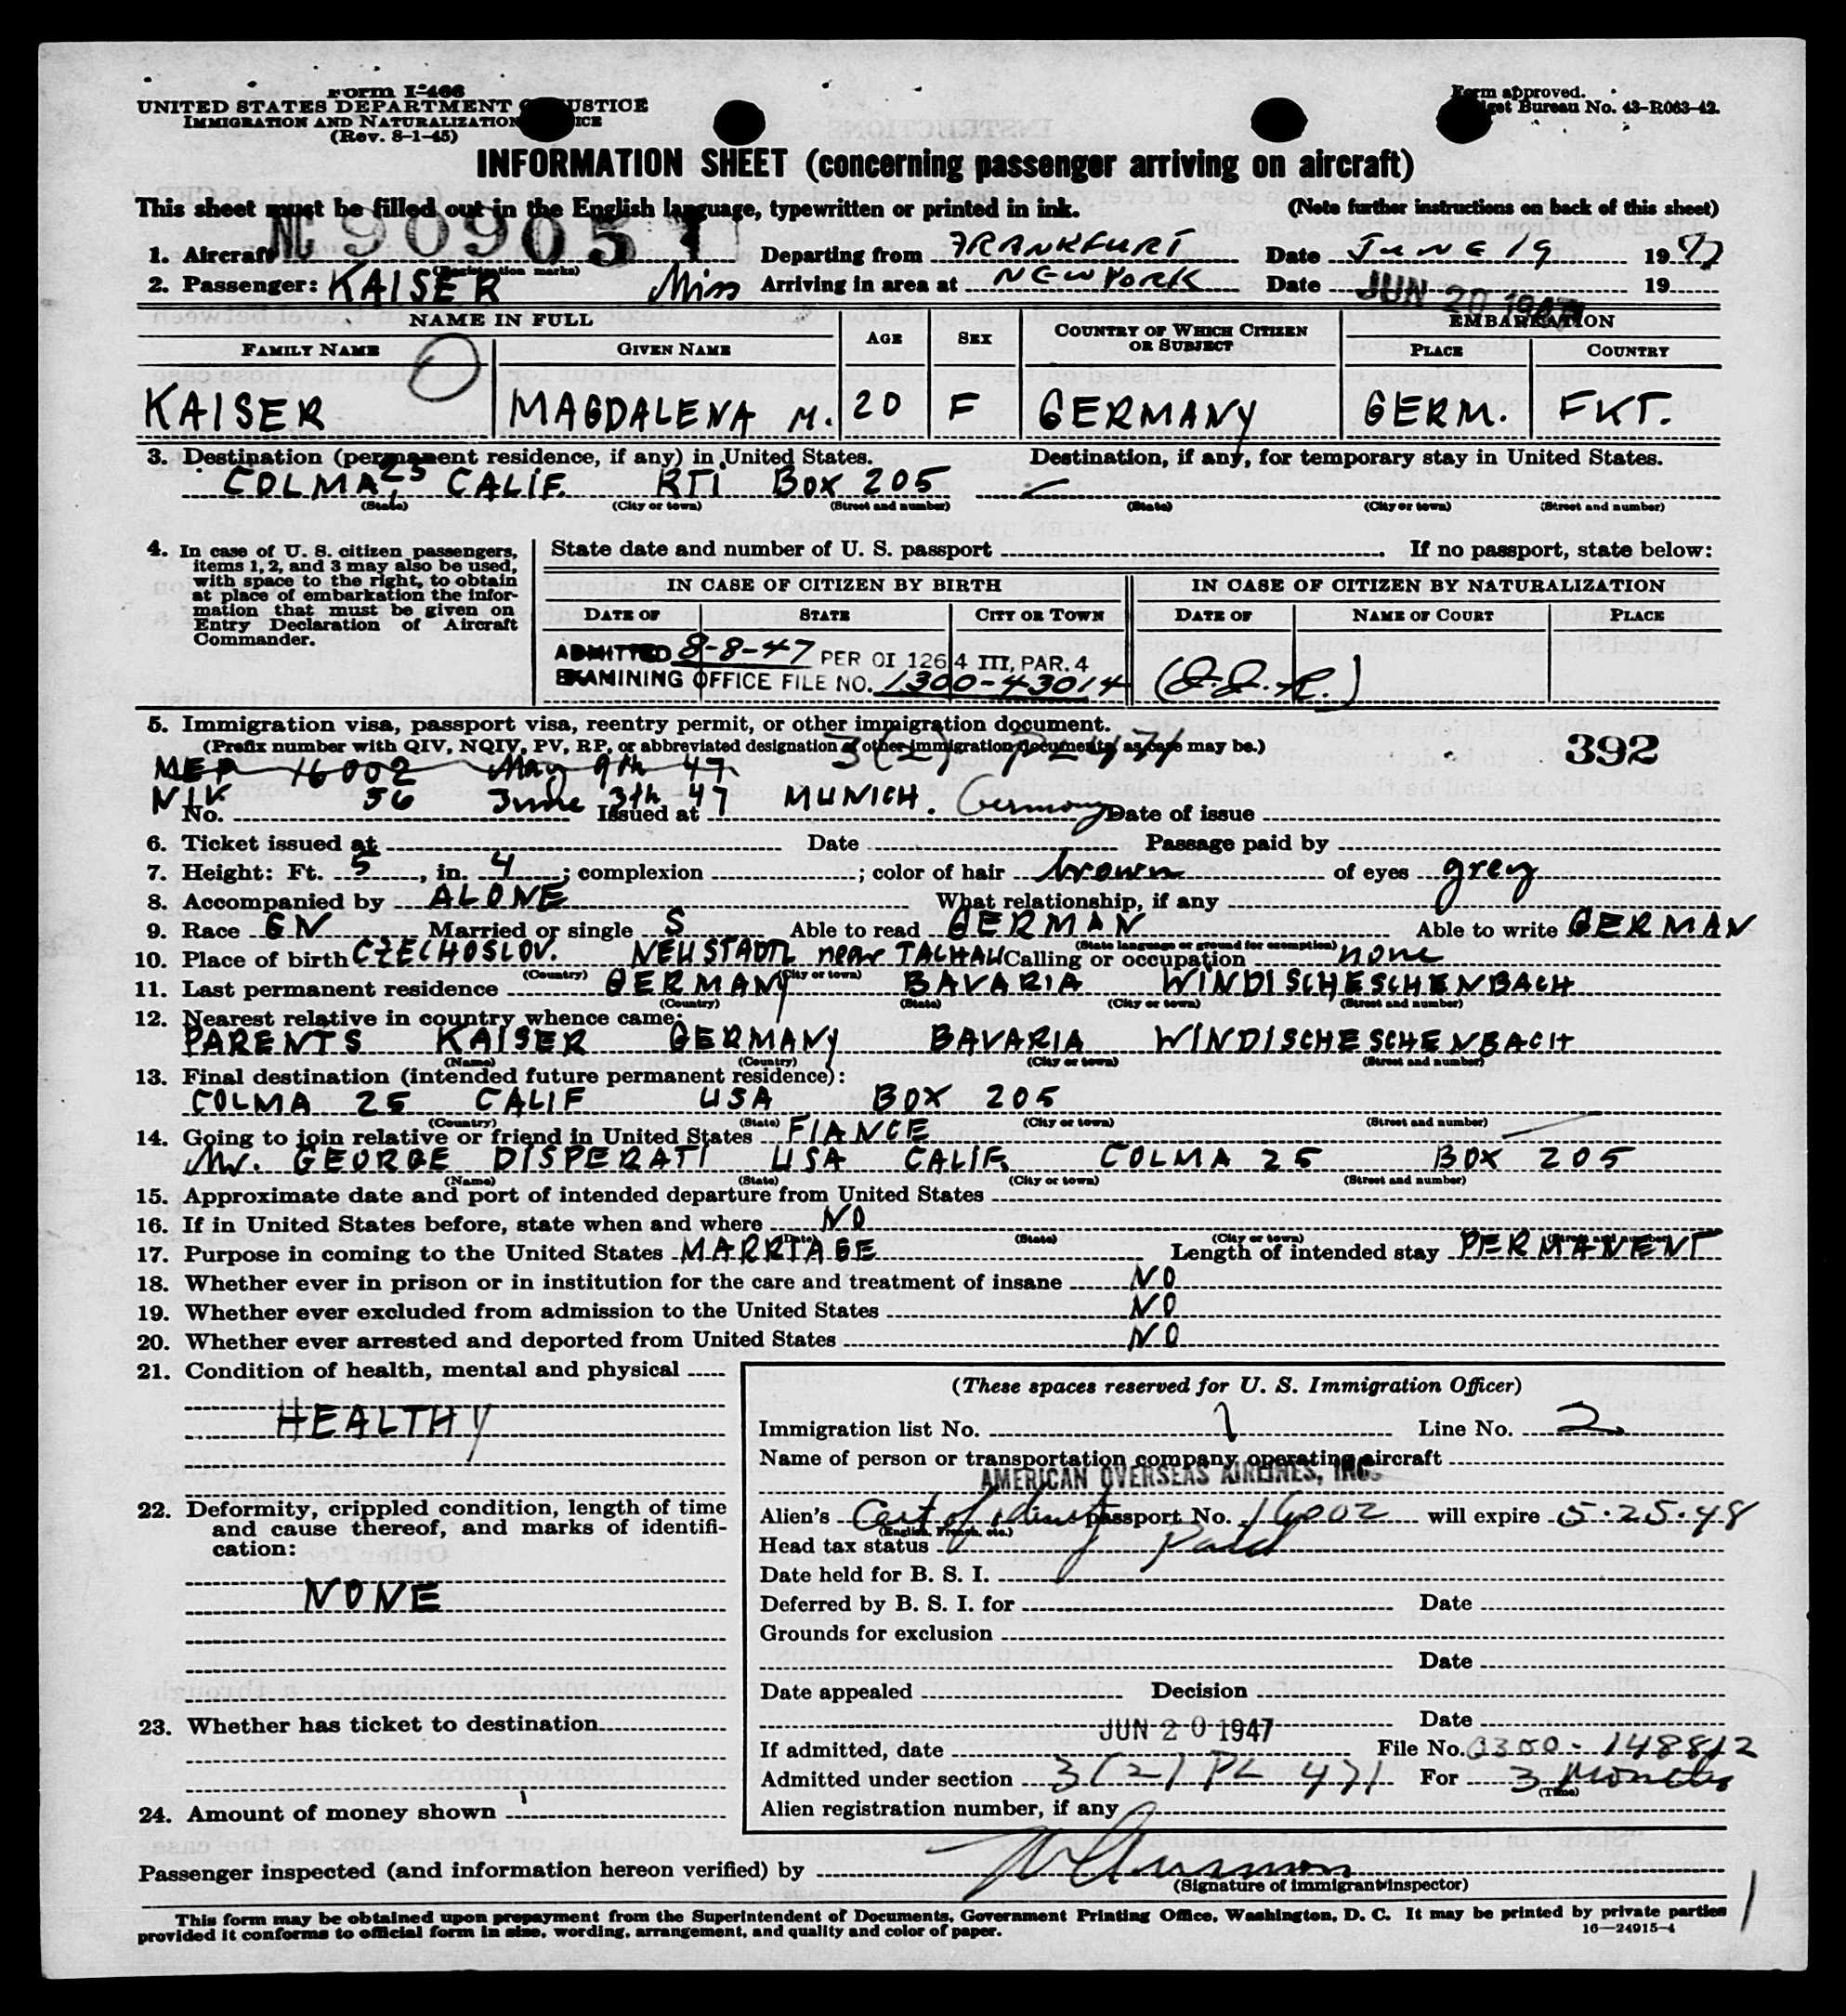 Form I-466
UNITED STATES DEPARTMENT OF JUSTICE
IMMIGRATION AND NATURALIZATION SERVICE
(Rev. 8-1-45)
Form approved.
Budget Bureau No. 43-R063-42.
INFORMATION SHEET (concerning passenger arriving on aircraft)
This sheet must be filled out in the English language, typewritten or printed in ink. (Note further instructions on back of this sheet)
1. Aircraft NC 90905 Departing from FRANKFURT Date JUNE 19 1947
(Registration marks)
2. Passenger: KAISER Miss Arriving in area at NEW YORK Date JUN 20 1947 19
NAME IN FULL AGE SEX COUNTRY OF WHICH CITIZEN OR SUBJECT EMBARKATION
FAMILY NAME GIVEN NAME PLACE COUNTRY
KAISER MAGDALENA M. 20 F GERMANY GERM. FKT.
3. Destination (permanent residence, if any) in United States. Destination, if any, for temporary stay in United States.
COLMA 25 CALIF. RT1 BOX 205 —
(State) (City or town) (Street and number) (State) (City or town) (Street and number)
4. In case of U. S. citizen passengers, items 1, 2, and 3 may also be used, with space to the right, to obtain at place of embarkation the information that must be given on Entry Declaration of Aircraft Commander.
State date and number of U. S. passport If no passport, state below:
IN CASE OF CITIZEN BY BIRTH IN CASE OF CITIZEN BY NATURALIZATION
DATE OF STATE CITY OR TOWN DATE OF NAME OF COURT PLACE
ADMITTED 8-8-47 PER OI 126.4 III, PAR. 4
EXAMINING OFFICE FILE NO. 1300-43014
5. Immigration visa, passport visa, reentry permit, or other immigration document.
(Prefix number with QIV, NQIV, PV, RP, or abbreviated designation of other immigration documents, as case may be.)
3(2) PL 471 392
MEP 16002 May 9th 47
NIV 56 June 3th 47 MUNICH. Germany
No. Issued at Date of issue
6. Ticket issued at Date Passage paid by
7. Height: Ft. 5, in. 4; complexion ; color of hair brown of eyes grey
8. Accompanied by ALONE What relationship, if any
9. Race GN Married or single S Able to read GERMAN Able to write GERMAN
(State language or ground for exemption)
10. Place of birth CZECHOSLOV. NEUSTADTL near TACHAU Calling or occupation none
(Country) (City or town)
11. Last permanent residence GERMANY BAVARIA WINDISCHESCHENBACH
(Country) (State) (City or town) (Street and number)
12. Nearest relative in country whence came:
PARENTS KAISER GERMANY BAVARIA WINDISCHESCHENBACH
(Name) (Country) (City or town) (Street and number)
13. Final destination (intended future permanent residence):
COLMA 25 CALIF USA BOX 205
(Country) (State) (City or town) (Street and number)
14. Going to join relative or friend in United States FIANCE
Mr. GEORGE DISPERATI USA CALIF. COLMA 25 BOX 205
(Name) (State) (City or town) (Street and number)
15. Approximate date and port of intended departure from United States
16. If in United States before, state when and where NO
(Date) (State) (City or town) (Street and number)
17. Purpose in coming to the United States MARRIAGE Length of intended stay PERMANENT
18. Whether ever in prison or in institution for the care and treatment of insane NO
19. Whether ever excluded from admission to the United States NO
20. Whether ever arrested and deported from United States NO
21. Condition of health, mental and physical
HEALTHY
22. Deformity, crippled condition, length of time and cause thereof, and marks of identification:
NONE
23. Whether has ticket to destination
24. Amount of money shown
(These spaces reserved for U. S. Immigration Officer)
Immigration list No. 1 Line No. 2
Name of person or transportation company operating aircraft
AMERICAN OVERSEAS AIRLINES, INC.
Alien's Cert of identity passport No. 16002 will expire 5-25-48
(English, French, etc.)
Head tax status Paid
Date held for B. S. I.
Deferred by B. S. I. for Date
Grounds for exclusion
Date
Date appealed Decision
Date
If admitted, date JUN 20 1947 File No. 0300-148812
Admitted under section 3(2) PL 471 For 3 Months
(Time)
Alien registration number, if any
Passenger inspected (and information hereon verified) by
(Signature of immigrant inspector)
This form may be obtained upon prepayment from the Superintendent of Documents, Government Printing Office, Washington, D. C. It may be printed by private parties
provided it conforms to official form in size, wording, arrangement, and quality and color of paper.
16—24915-4